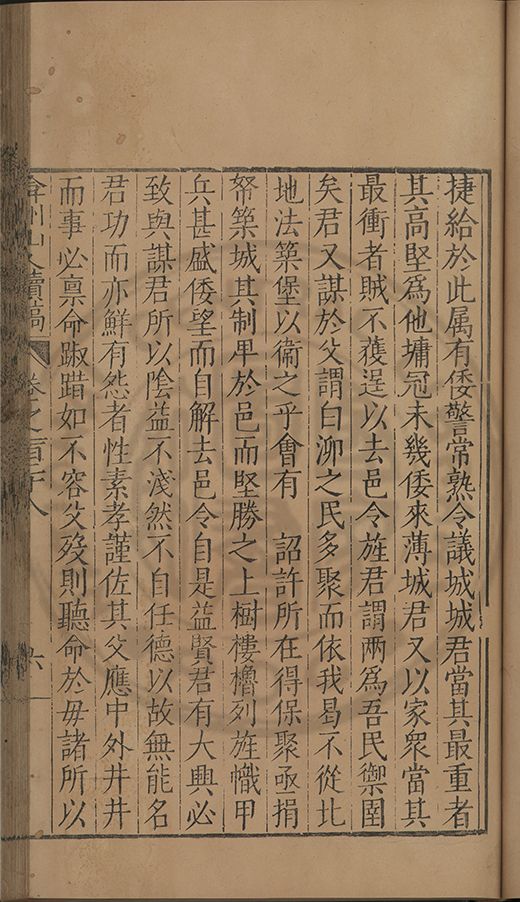 捷給於此属有倭警常熟令議城城君當其最重者
其高堅為他墉冠未幾倭來薄城君又以家衆當其
最衝者賊不獲逞以去邑令旌君謂兩為吾民禦圉
矣君又謀於父謂白泖之民多聚而依我曷不從北
地法築堡以衞之乎會有 詔許所在得保聚亟捐
帑築城其制卑於邑而堅勝之上樹樓櫓列旌幟甲
兵甚盛倭望而自解去邑令自是益賢君有大興必
致與謀君所以陰益不淺然不自任德以故無能名
君功而亦鮮有怨者性素孝謹佐其父應中外井井
而事必禀命踧踖如不容父歿則聽命於毋諸所以
弇州山人續稿 卷之百一八 六